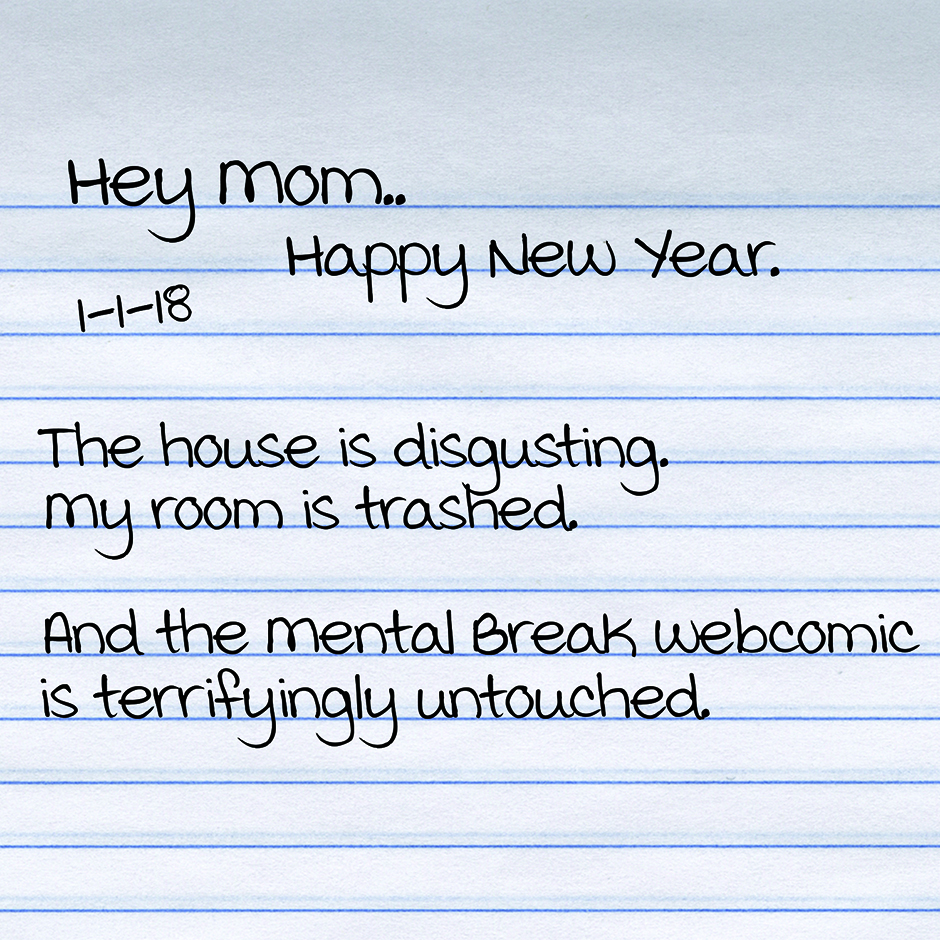 Hey Mom..
Happy New Year.
1-1-18
The house is disgusting.
My room is trashed.
And the Mental Break webcomic
is terrifyingly untouched.